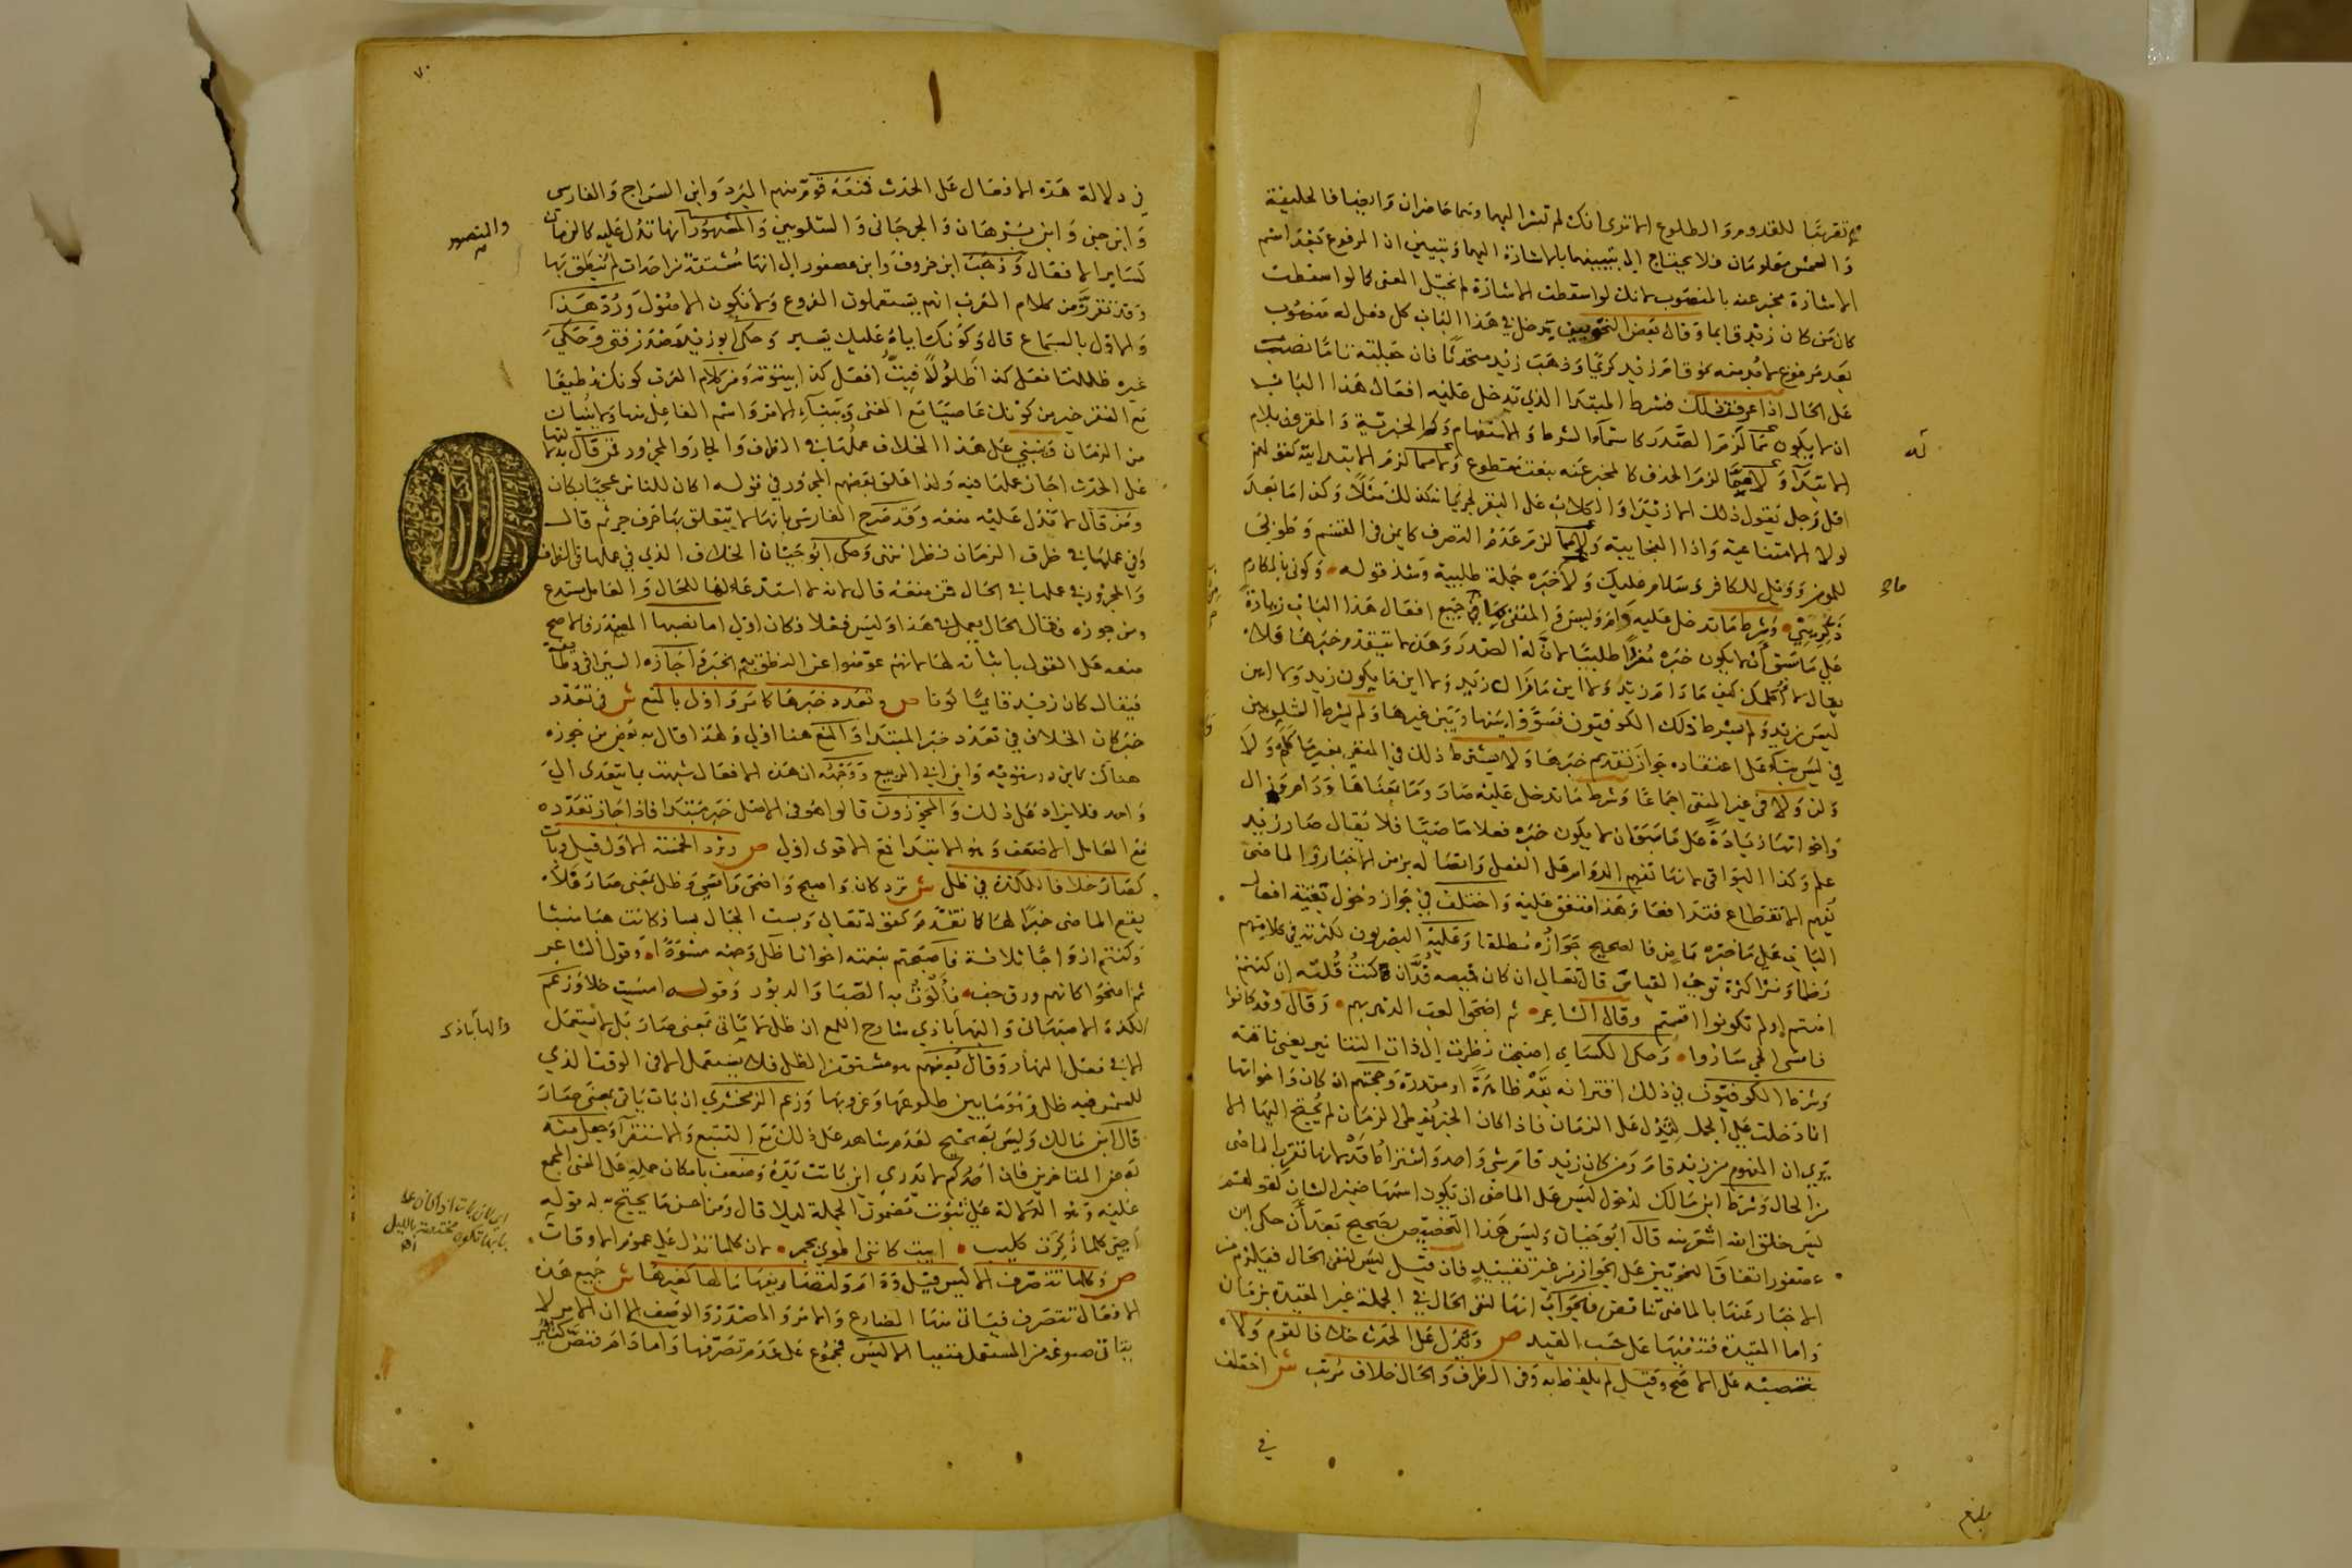 تقريبا للقدوم والطلوع الا ترى انك لم تشر اليهما وهما حاضران وايضا فالخليفة
والشمس معلومان فلا يحتاج الى تبيينهما بالاشارة اليهما وتبين ان المرفوع بعد اسم
الاشارة مخبر عنه بالمنصوب لانك لو اسقطت الاشارة لم يختل المعنى كما لو اسقطت
كان من كان زيد قايما وقال بعض النحويين يدخل في هذا الباب كل فعل له منصوب
بعد مرفوع لا بد منه نحو قام زيد كريما وذهب زيد متحدثا فان جعلته تاما نصبت
على الحال اذا عرفت ذلك فشرط المبتدا الذي تدخل عليه افعال هذا الباب
ان لا يكون مما لزم الصدر كاسماء الشرط والاستفهام وكم الخبرية والمقرون بلام
الابتداء ولا مما لزم الحذف كالمخبر عنه بنعت مقطوع ولا مما لزم الابتدائية كقولهم
اقل رجل يقول ذلك الا زيدا والكلاب على البقر لجريانه كذلك مثلا وكذا ما بعد
لولا الامتناعية واذا الفجايية ولا مما لزم عدم التصرف كايمن في القسم وطوبى
للمومن وويل للكافر وسلام عليك ولا خبره جملة طلبية وشذ قوله وكوني بالمكارم
ذكريني وشرط ما تدخل عليه دام وليس والمنفي بما في جميع افعال هذا الباب زيادة
على ما سبق ان لا يكون خبره مفردا طلبيا لان له الصدر وهذه لا يتقدم خبرها فلا
يقال لا اكلمك كيف ما دام زيد ولا اين ما زال زيد ولا اين ما يكون زيد ولا اين
ليس زيد ولم يشترط ذلك الكوفيون فسووا بينها وبين غيرها ولم يشرط الشلوبين
في ليس بناء على اعتقاده جواز تقديم خبرها ولا يشترط ذلك في المنفي بغير ما كلم ولا
ولن ولا في غير المنفي اجماعا وشرط ما تدخل عليه صار وما بمعناها ودام وزال
واخواتها زيادة على ما سبق ان لا يكون خبره فعلا ماضيا فلا يقال صار زيد
علم وكذا البواقي لانها تفهم الدوام على الفعل واتصاله بزمن الاخبار والماضي
يفهم الانقطاع فتدافعا وهذا متفق عليه واختلف في جواز دخول بقية افعال
الباب على ما خبره ماض فالصحيح جوازه مطلقا وعليه البصريون لكثرته في كلامهم
نظما ونثرا كثرة توجب القياس قال تعالى ان كان قميصه قد ان كنت قلته ان كنتم
امنتم اولم تكونوا اقسمتم وقال الشاعر ثم اضحوا لعب الدهر بهم وقال وقد كانوا
فامسى الحي ساروا وحكى الكسائي اصبحت نظرت الى ذات التنانير يعني ناقته
وشرط الكوفيون في ذلك اقترانه بقد ظاهرة او مقدرة وحجتهم ان كان واخواتها
انما دخلت على الجمل لتدل على الزمان فاذا كان الخبر يعطي الزمان لم يحتج اليها الا
ترى ان المفهوم من زيد قام ومن كان زيد قام شي واحد واشتراط قد لانها تقرب الماضي
من الحال وشرط ابن مالك لدخول ليس على الماضي ان يكون اسمها ضمير الشان كقولهم
ليس خلق الله اشعر منه قال ابو حيان وليس هذا التخصيص بصحيح بعد ان حكى ابن
عصفور اتفاق النحويين على الجواز من غير تقييد فان قيل ليس لنفي الحال فيلزم من
الاخبار عنها بالماضي تناقض فالجواب انها لنفي الحال في الجملة غير المقيدة بزمان
واما المقيدة فتنفيها على حسب القيد ص وتدل على الحدث خلافا لقوم ولا
تنصبه على الاصح وقيل لم يلفظ به وفي الظرف والحال خلاف مرتب ش اختلف
في
في دلالة هذه الافعال على الحدث فمنعه قوم منهم المبرد وابن السراج والفارسي
وابن جني وابن برهان والجرجاني والشلوبين والمشهور انها تدل عليه كالزمان
كساير الافعال وذهب ابن خروف وابن عصفور الى انها مشتقة من احداث لم ينطق بها
وقد تقرر من كلام العرب انهم يستعملون الفروع ولا تكون الاصول ورد هذا
والاول بالسماع قال وكونك اياه عليك يسير وحكى ابو زيد مصدر فتئ وحكي
غيره ظللت افعل كذا ظلولا وبت افعل كذا بيتوتة ومن كلام العرب كونك مطيعا
مع الفقر خير من كونك عاصيا مع الغنى وببناء الامر واسم الفاعل منها ولا يبنيان
من الزمان وينبني على هذا الخلاف عملها في الظرف والجار والمجرور فمن قال بدلالتها
على الحدث اجاز عملها فيه ولذا علق بعضهم المجرور في قوله اكان للناس عجبا بكان
ومن قال لا تدل عليه منعه وقد صرح الفارسي بانها لا يتعلق بها حرف جر ثم قال
وفي عملها في ظرف الزمان نظر انتهى وحكى ابو حيان الخلاف الذي في عملها في الظرف
والمجرور في عملها في الحال فمن منعه قال لانه لا استدعاء لها للحال والعامل مستدع
ومن جوزه فقال الحال يعمل فيها هذا وليس فعلا فكان اولى اما نصبها المصدر فالاصح
منعه على القول باثباته لها لانهم عوضوا عن النطق به الخبر واجازه السيرافي وطائفة
فيقال كان زيد قايما كونا ص وتعدد خبرها كامر واولى بالمنع ش في تعدد
خبر كان الخلاف في تعدد خبر المبتدا والمنع هنا اولى ولهذا قال به بعض من جوزه
هناك كابن درستويه وابن ابي الربيع ووجهه ان هذه الافعال شبهت بما يتعدى الى
واحد فلا يزاد على ذلك والمجوزون قالوا هو في الاصل خبر مبتدا فاذا جاز تعدده
مع العامل الاضعف وهو الابتداء فمع الاقوى اولى ص وترد الخمسة الاول قيل وبات
كصار خلافا للكذة في ظل ش ترد كان واصبح واضحى وامسى وظل بمعنى صار فلا
يقع الماضي خبرا لها كما تقدم كقوله تعالى وبست الجبال بسا فكانت هباء منبثا
وكنتم ازواجا ثلاثة فاصبحتم بنعمته اخوانا ظل وجهه مسودا وقول الشاعر
ثم اضحوا كانهم ورق جف فألوت به الصبا والدبور وقوله امست خلاء وزعم
لكذة الاصبهاني والبهاباذي شارح اللمع ان ظل لا ياتي بمعنى صار بل لا يستعمل
الا في فعل النهار وقال بعضهم هو مشتق من الظل فلا يستعمل الا في الوقت الذي
للشمس فيه ظل وهو ما بين طلوعها وغروبها وزعم الزمخشري ان بات ياتي بمعنى صار
قال ابن مالك وليس بصحيح لعدم شاهد على ذلك مع التتبع والاستقرا وجعل منه
بعض المتاخرين فان احدكم لا يدري اين باتت يده وضعف بامكان حمله على المعنى المجمع
عليه وهو الدلالة على ثبوت مضمون الجملة ليلا قال ومن احسن ما يحتج به له قوله
اجني كلما ذكرت كليب ابيت كانني اطوى بجمر لان كلما تدل على عموم الاوقات
ص وكلها تتصرف الا ليس قيل ودام ولتصاريفها ما لها كغيرها ش جميع هذه
الافعال تتصرف فياتي منها المضارع والامر والمصدر والوصف الا ان الامر لا
ياتي صوغه من المستعمل منفيا الا ليس فمجمع على عدم تصرفها واما دام فنص كثير